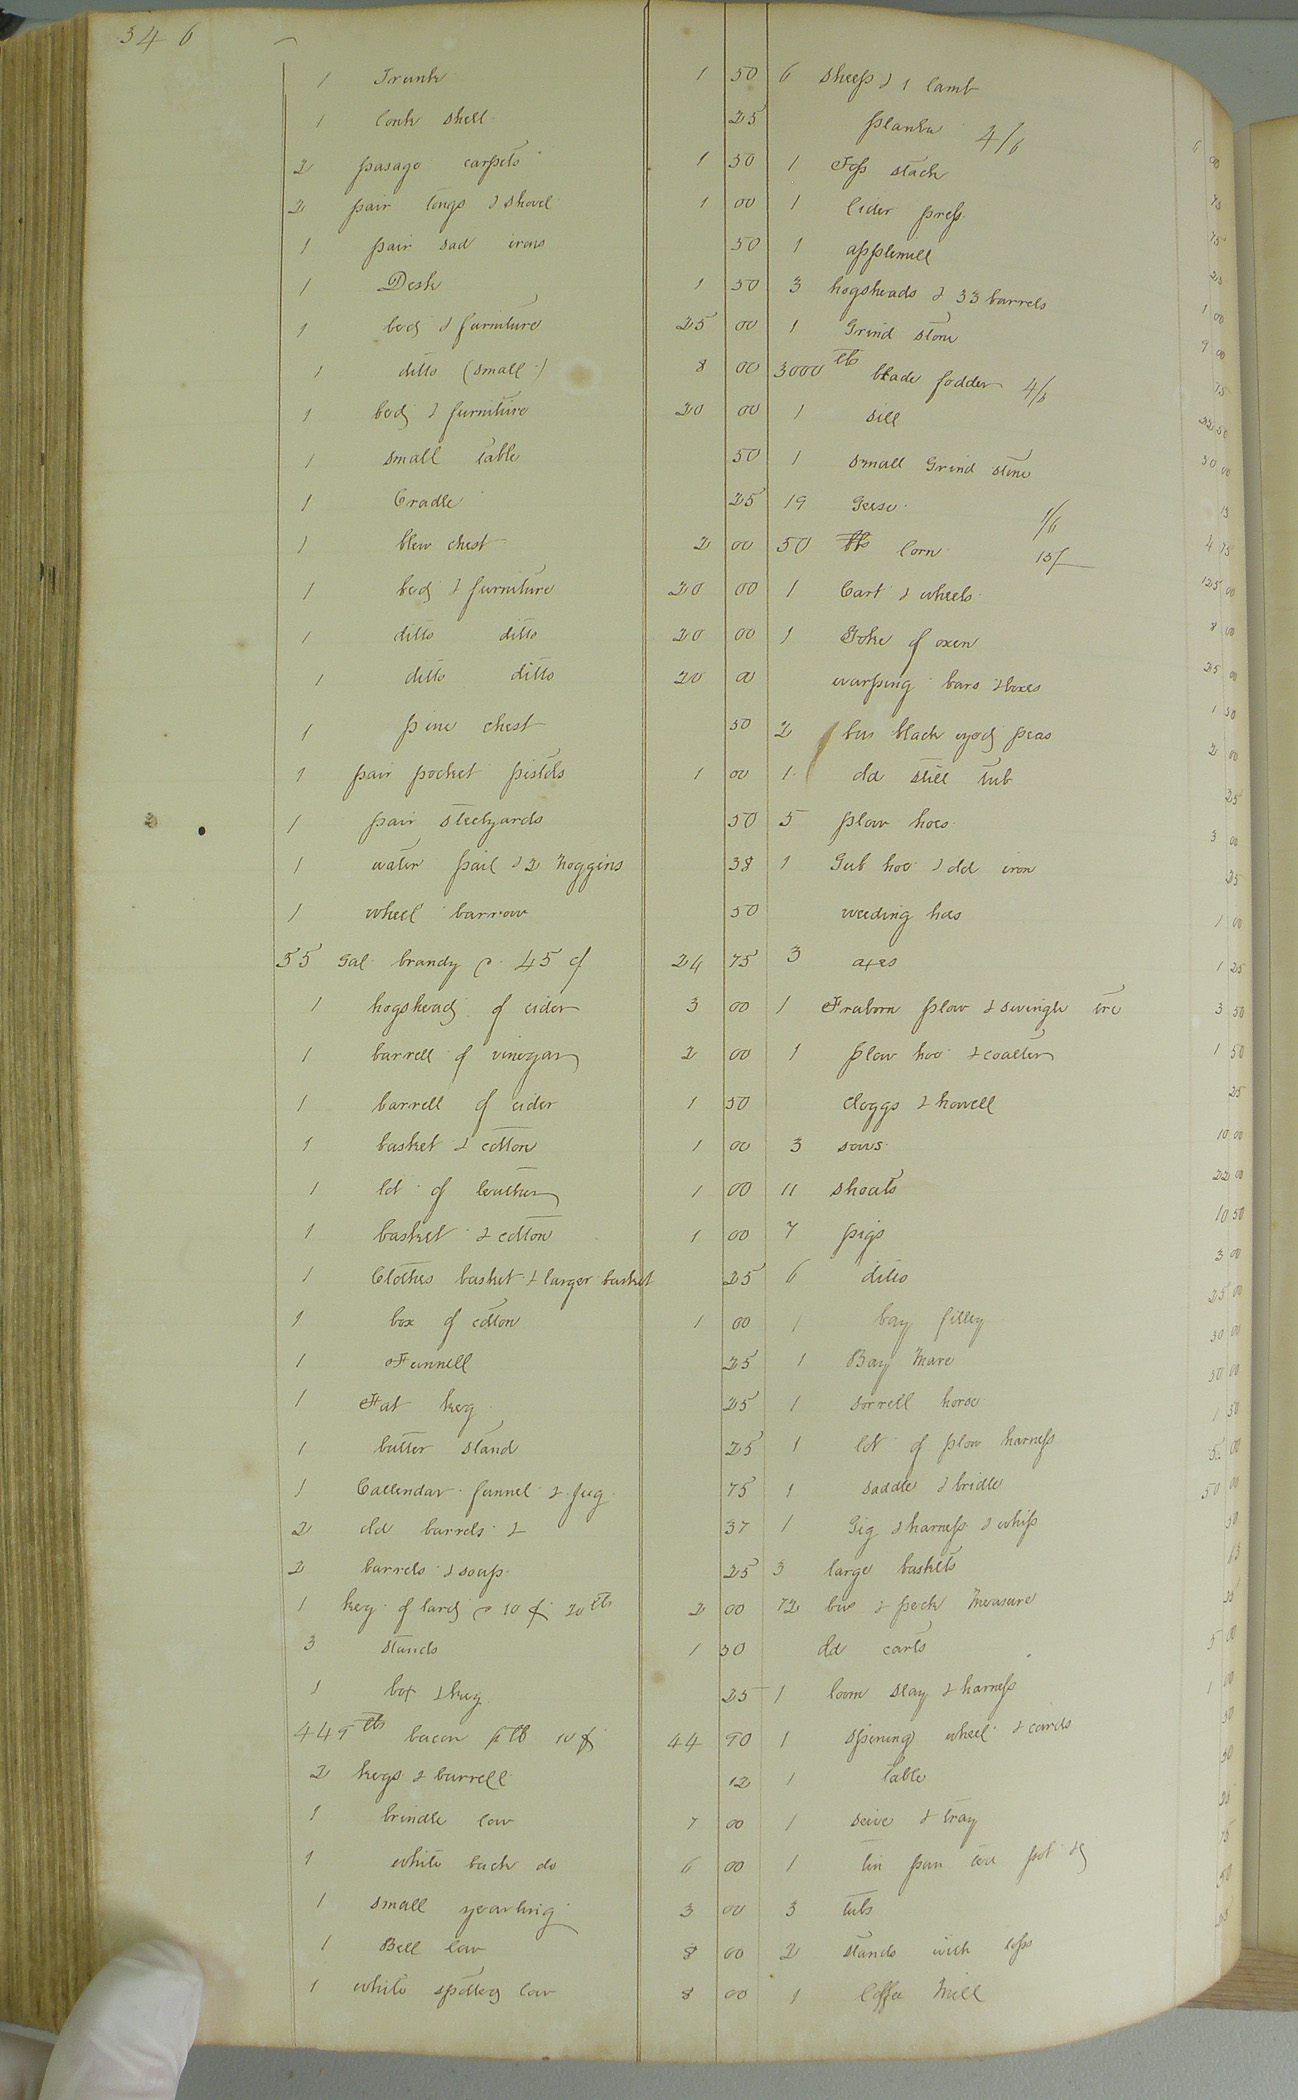 346
1 Trunk 1 50
1 Conk shell 25
2 pasage carpets 1 50
2 pair tongs & shovel 1 00
1 pair sad irons 50
1 Desk 1 50
1 bed & furniture 25 00
1 ditto (small) 8 00
1 bed & furniture 20 00
1 small table 50
1 Cradle 25
1 blew chest 2 00
1 bed & furniture 20 00
1 ditto ditto 20 00
1 ditto ditto 20 00
1 pine chest 50
1 pair pocket pistols 1 00
1 pair steelyards 50
1 water pail & 2 noggins 38
1 wheel barrow 50
55 Gal. brandy @ 45 c 24 75
1 hogshead of cider 3 00
1 barrell of vinegar 2 00
1 barrell of cider 1 50
1 basket & cotton 1 00
1 lot of leather 1 00
1 basket & cotton 1 00
1 Clothes basket & larger basket 25
1 box of cotton 1 00
1 Funnell 25
1 Fat keg 25
1 butter stand 25
1 Callendar funnel & jug 75
2 old barrels & 37
2 barrels & soap 25
1 keg of lard @ 10 c 20 lbs 2 00
3 stands 1 50
1 box & keg 25
449 lbs bacon p lb 10 c 44 90
2 kegs & barrell 12
1 brindle Cow 7 00
1 white back do 6 00
1 small yearling 3 00
1 Bell Cow 8 00
1 white spotted Cow 8 00
6 sheep & 1 lamb 6 00
plank 4/6 75
1 Top stack 75
1 Cider press 25
1 applemill 1 00
3 hogsheads & 33 barrels 9 00
1 Grind stone 75
3000 lbs blade fodder 4/6 22 50
1 sill 50 00
1 small Grind stone 13
19 Geese 1/6 4 75
50 bbs Corn 15/ 125 00
1 Cart & wheels 8 00
1 Yoke of oxen 25 00
warping bars & boxes 1 50
2 bus black eyed peas 2 00
1 old still tub 25
5 plow hoes 3 00
1 Gub hoe & old iron 25
weeding hoes 1 00
3 axes 1 25
1 Fraborn plow & swingle tre 3 50
1 plow hoe & coalter 1 50
Cloggs & howell 25
3 sows 10 00
11 shoats 22 00
7 pigs 10 50
6 ditto 3 00
1 bay filley 25 00
1 Bay Mare 30 00
1 sorrell horse 50 00
1 lot of plow harness 1 50
1 saddle & bridle 5 00
1 Gig & harness & whip 50 00
3 large baskets 50
1/2 bus & peck Measure 13
old carts
1 loom slay & harness 5 00
1 spining wheel & cards 1 00
1 table 50
1 seive & tray 50
1 tin pan tea pot &c
3 tubs 75
2 stands with tops 50
1 Coffee Mill